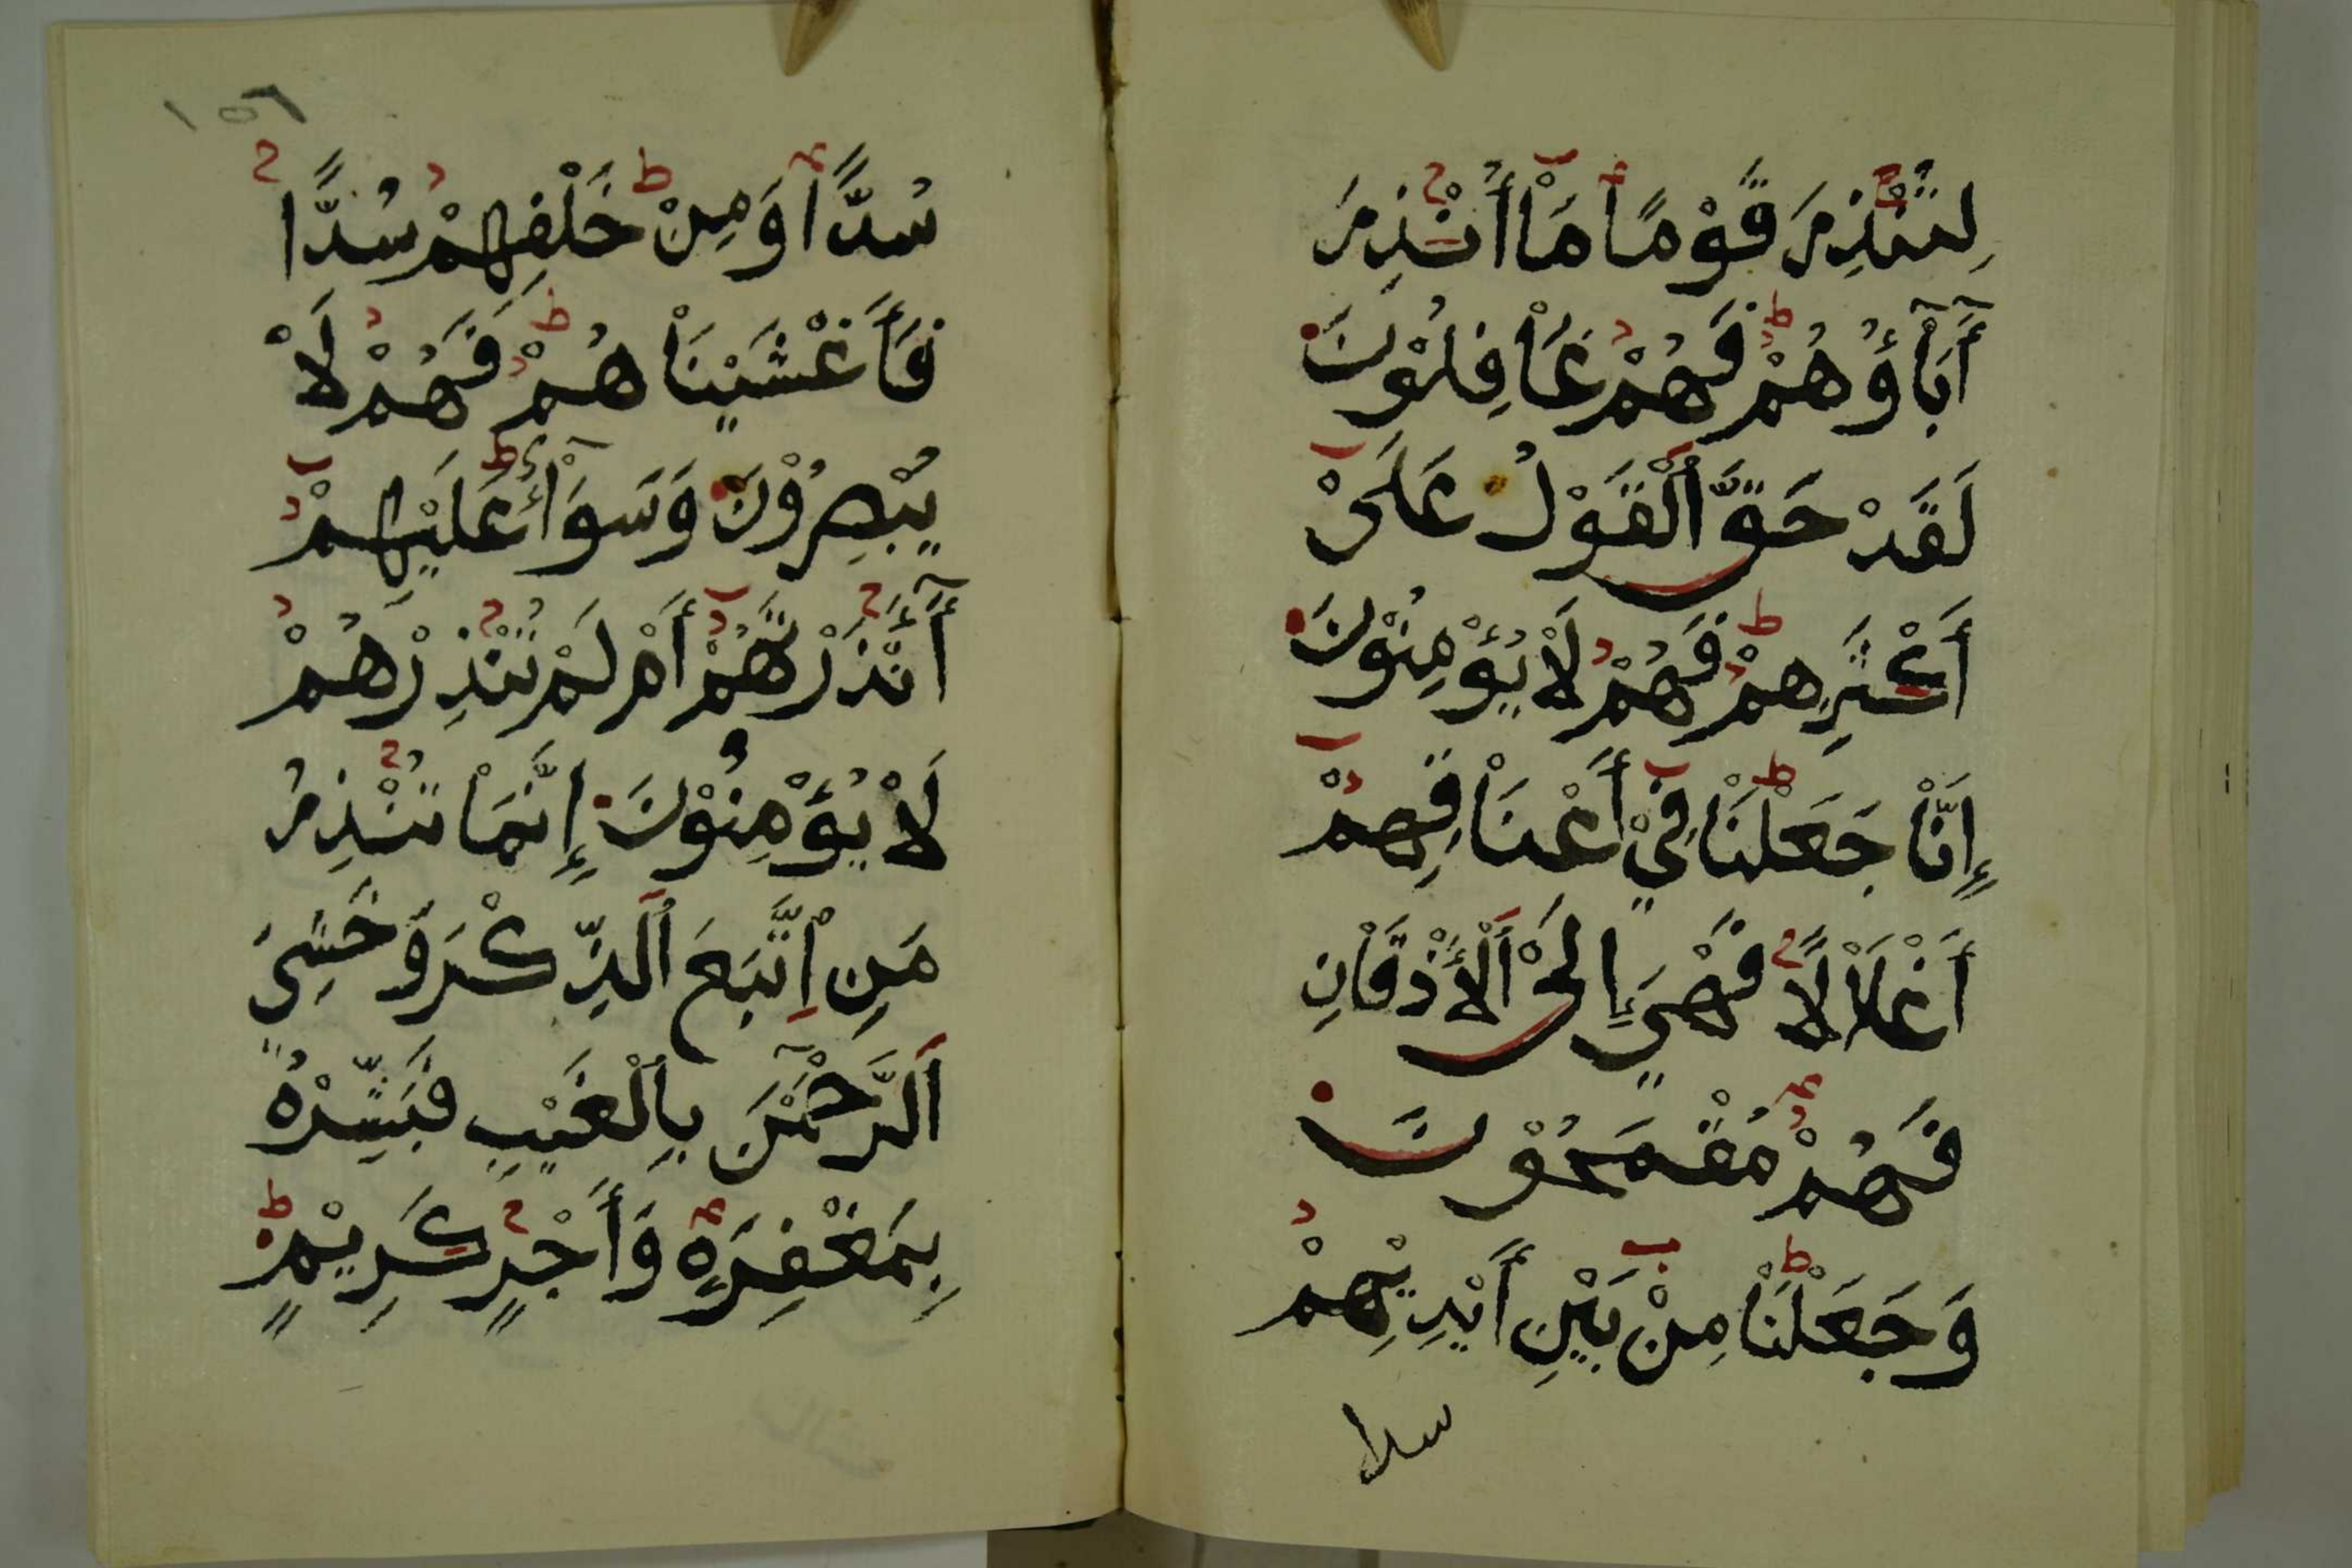 لِتُنْذِرَ قَوْمًا مَاْ أُنْذِرَ
آَبَاْؤُهُمْ فَهُمْ غَاْفِلُوْنَ
لَقَدْ حَقَّ اَلْقَوْلُ عَلَىْ
أَكْثَرِهِمْ فَهُمْ لَاْ يُؤْمِنُوْنَ
إِنَّاْ جَعَلْنَاْ فِيْ أَعْنَاْقِهِمْ
أَغْلَاْلًا فَهِيَ إِلَىْ اَلْأَذْقَاْنِ
فَهُمْ مُقْمَحُوْنَ
وَجَعَلْنَاْ مِنْ بَيْنِ أَيْدِيْهِمْ
سدا
١٥٦
سُدًّا وَمِنْ خَلْفِهِمْ سُدًّا
فَأَغْشَيْنَاْهُمْ فَهُمْ لَاْ
يُبْصِرُوْنَ وَسَوَاْءٌ عَلَيْهِمْ
أَأَنْذَرْتَهُمْ أَمْ لَمْ تُنْذِرْهُمْ
لَاْ يُؤْمِنُوْنَ إِنَّمَاْ تُنْذِرُ
مَنِ اِتَّبَعَ اَلذِّكْرَ وَخَشِيَ
اَلرَّحْمَنَ بِالْغَيْبِ فَبَشِّرْهُ
بِمَغْفِرَةٍ وَأَجْرٍ كَرِيْمٍ